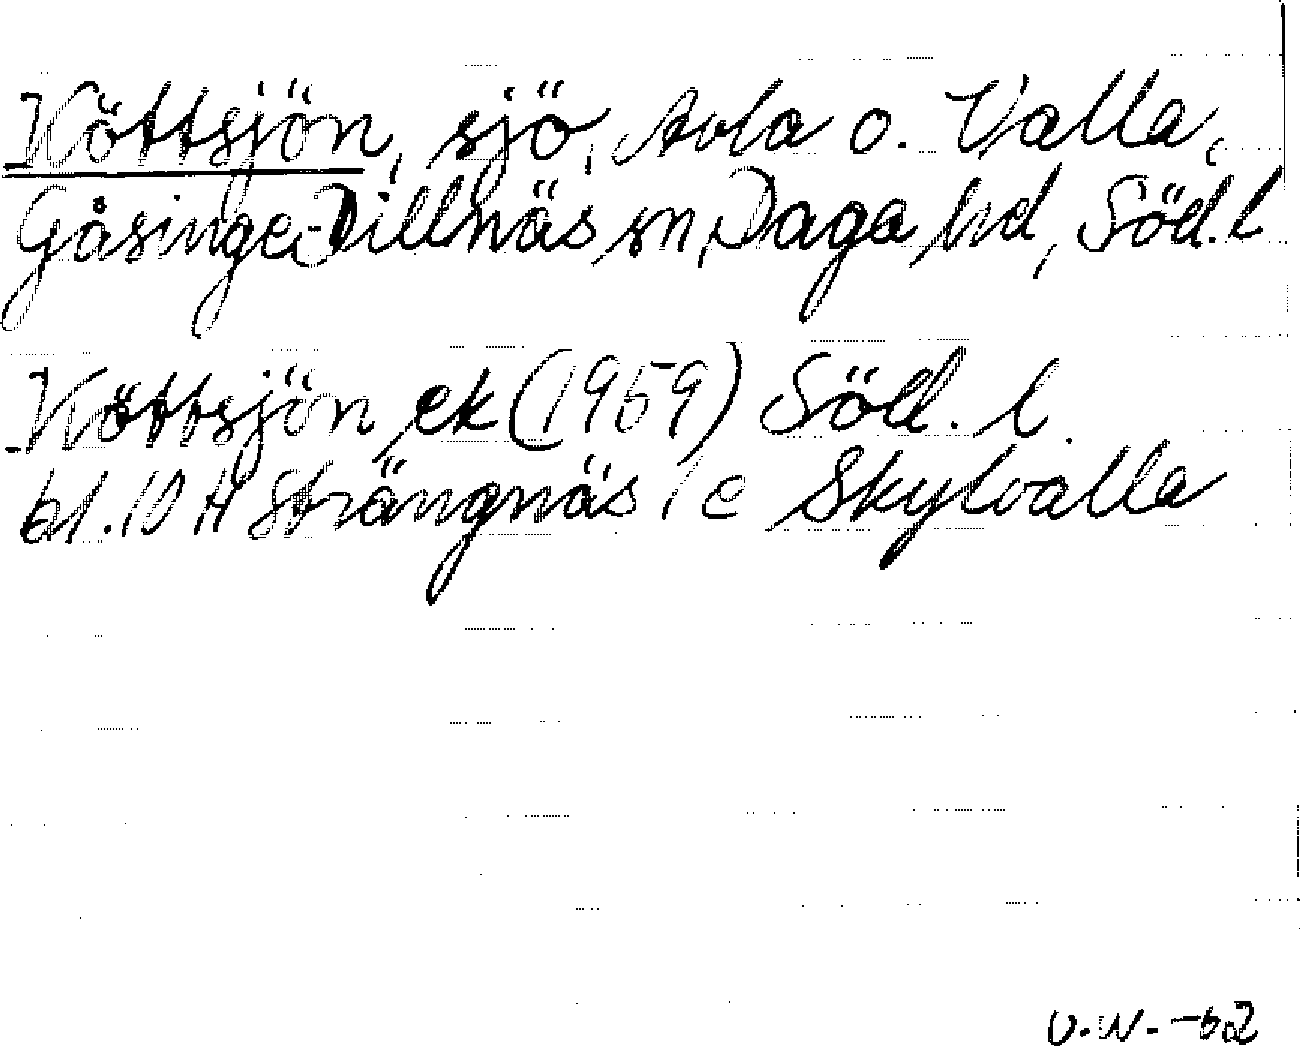 Köttsjön, sjö, Avla o. Valla,
Gåsinge-Dillnäs sn, Daga hd, Söd. l
Köttsjön ek (1959) Söd. l.
bl. 10 H Strängnäs 1 c Skylvalla
U.W. -62